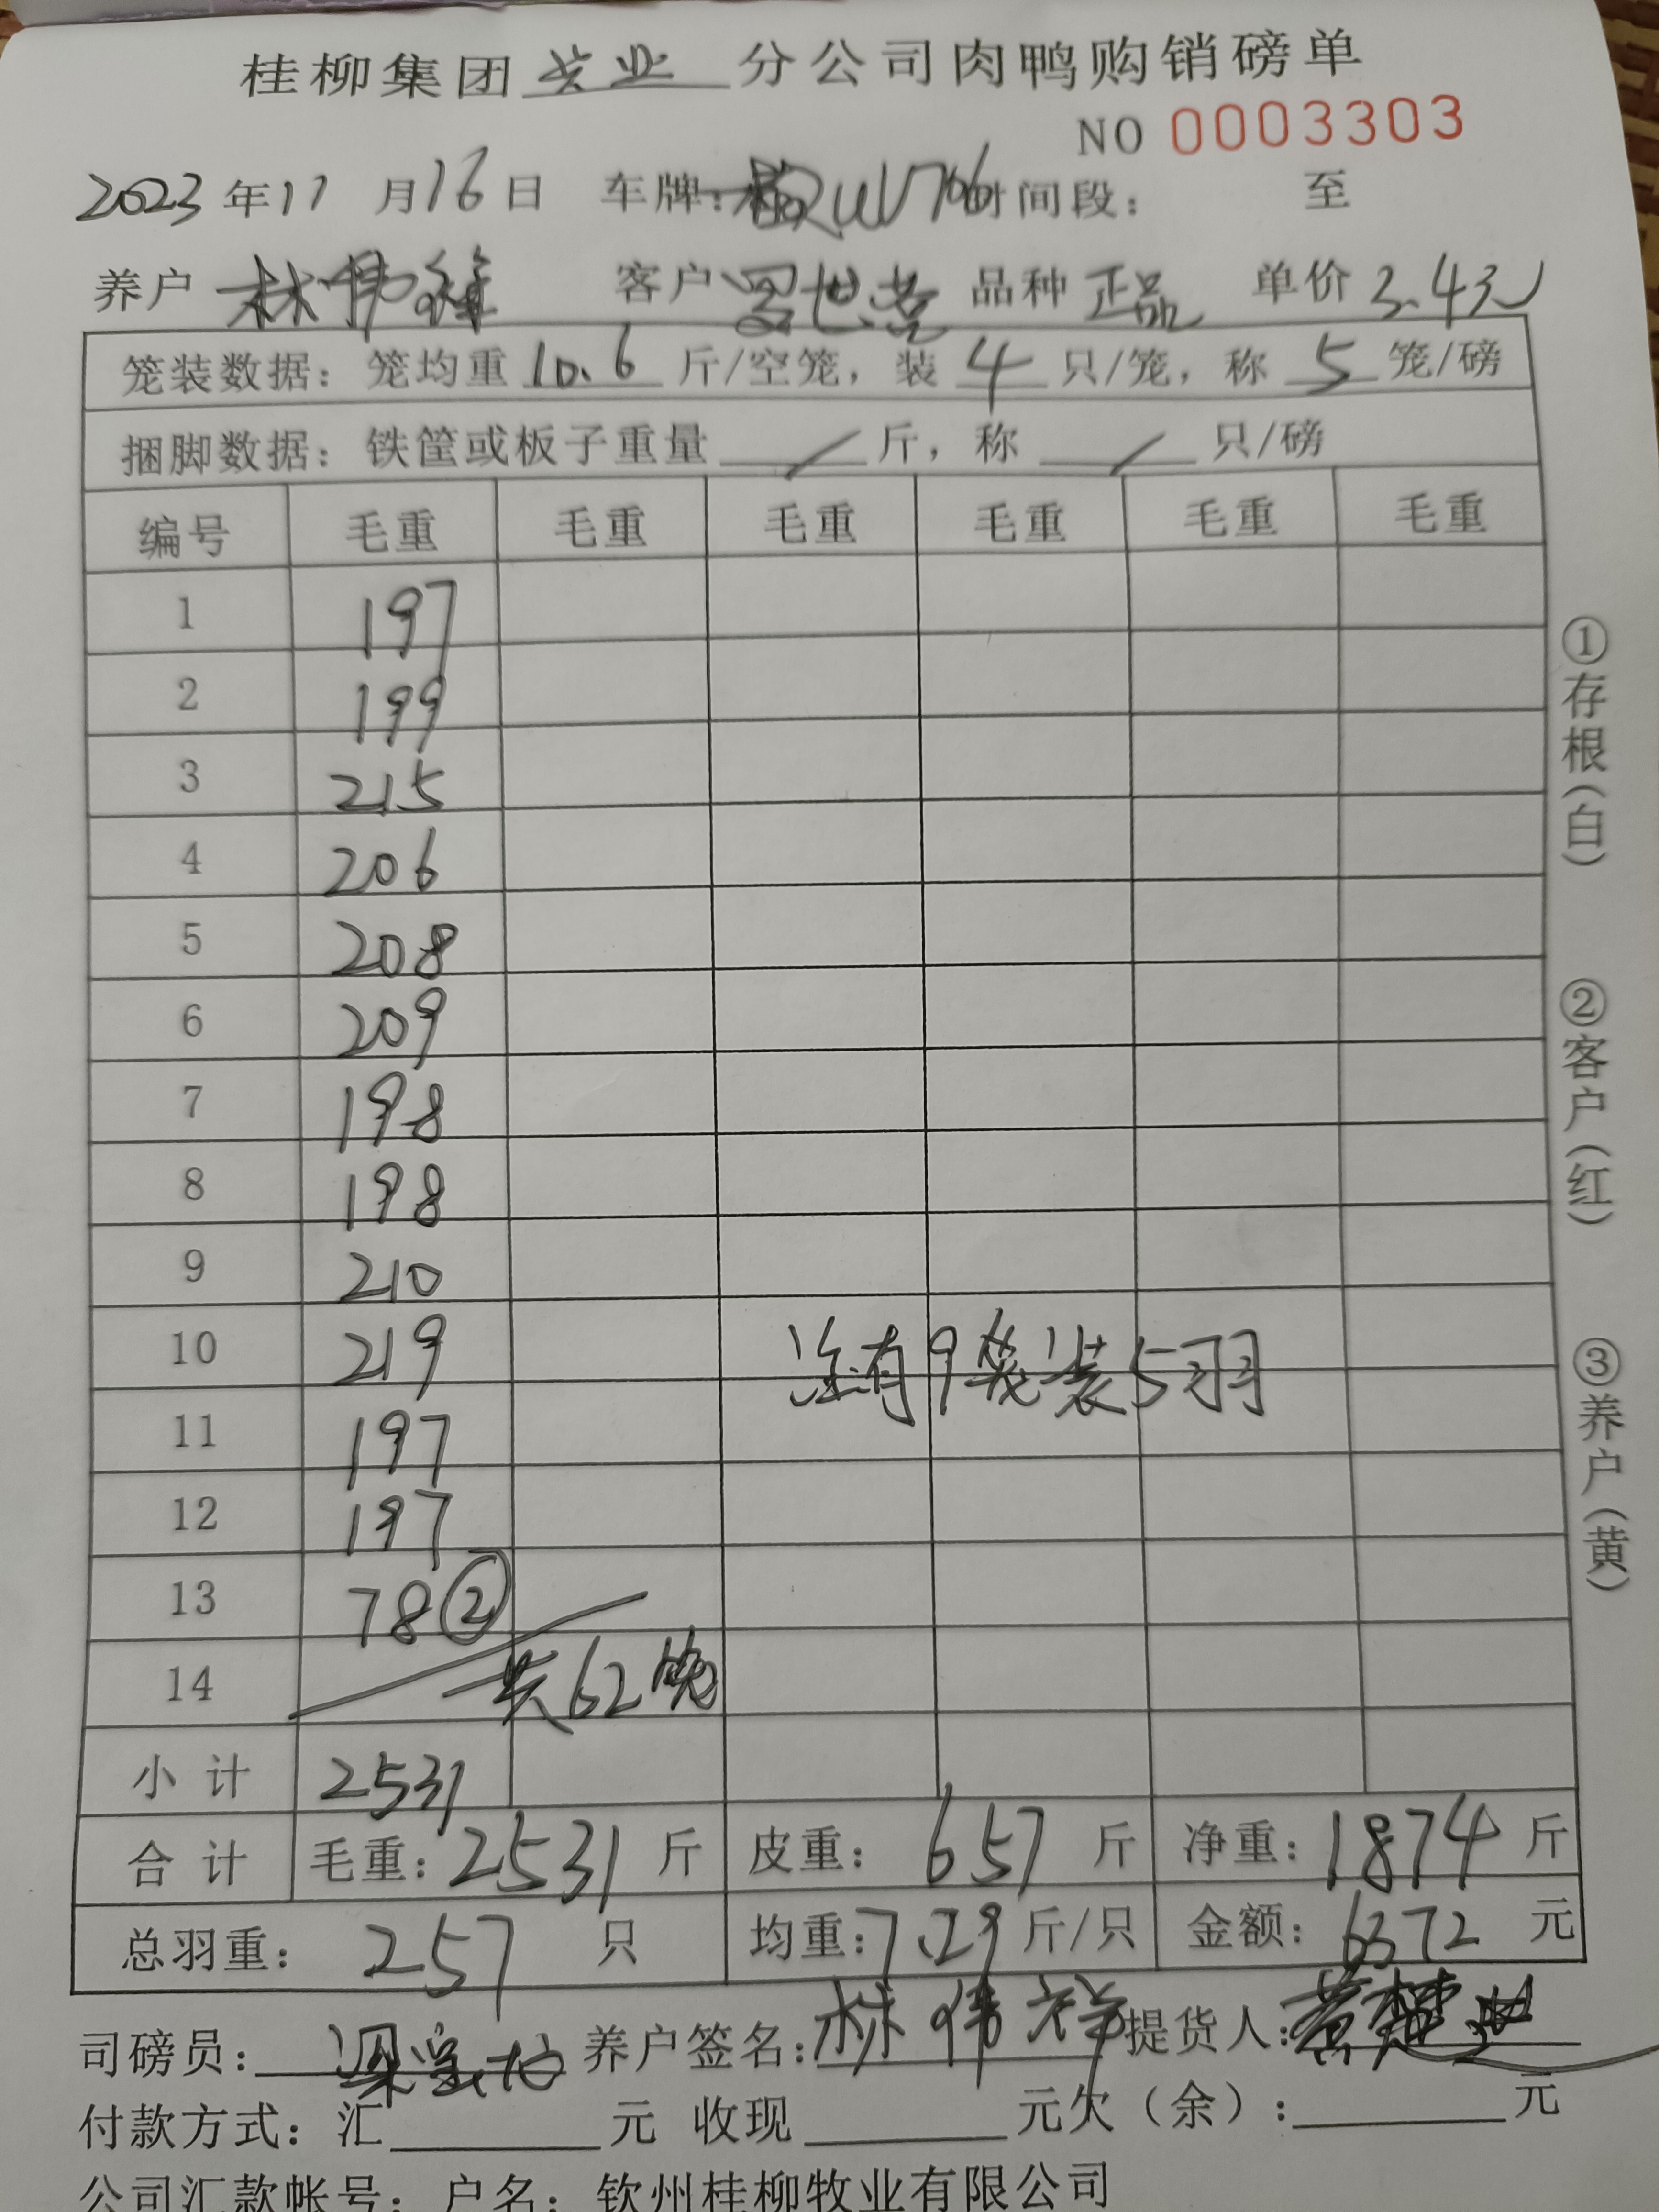 桂柳集团 业 分公司肉鸭购销磅单
NO 0003303
2023年11月16日 车牌: 时间段: 至
养户 林伟 客户 世 品种 正品 单价 3.4元
笼装数据: 笼均重 10.6 斤/空笼, 装 4 只/笼, 称 5 笼/磅
捆脚数据: 铁筐或板子重量 / 斤, 称 / 只/磅
编号 毛重 毛重 毛重 毛重 毛重 毛重
1 197
2 199
3 215
4 206
5 208
6 209
7 198
8 198
9 210
10 219
注:有9笼装5羽
11 197
12 197
13 78②
14 共62笼
小计 2531
合计 毛重: 2531 斤 皮重: 657 斤 净重: 1874 斤
总羽重: 257 只 均重: 7.29 斤/只 金额: 6372 元
司磅员: 梁 养户签名: 林伟祥 提货人: 黄楚
付款方式: 汇 元 收现 元欠(余): 元
公司汇款帐号: 户名: 钦州桂柳牧业有限公司
①存根(白)
②客户(红)
③养户(黄)